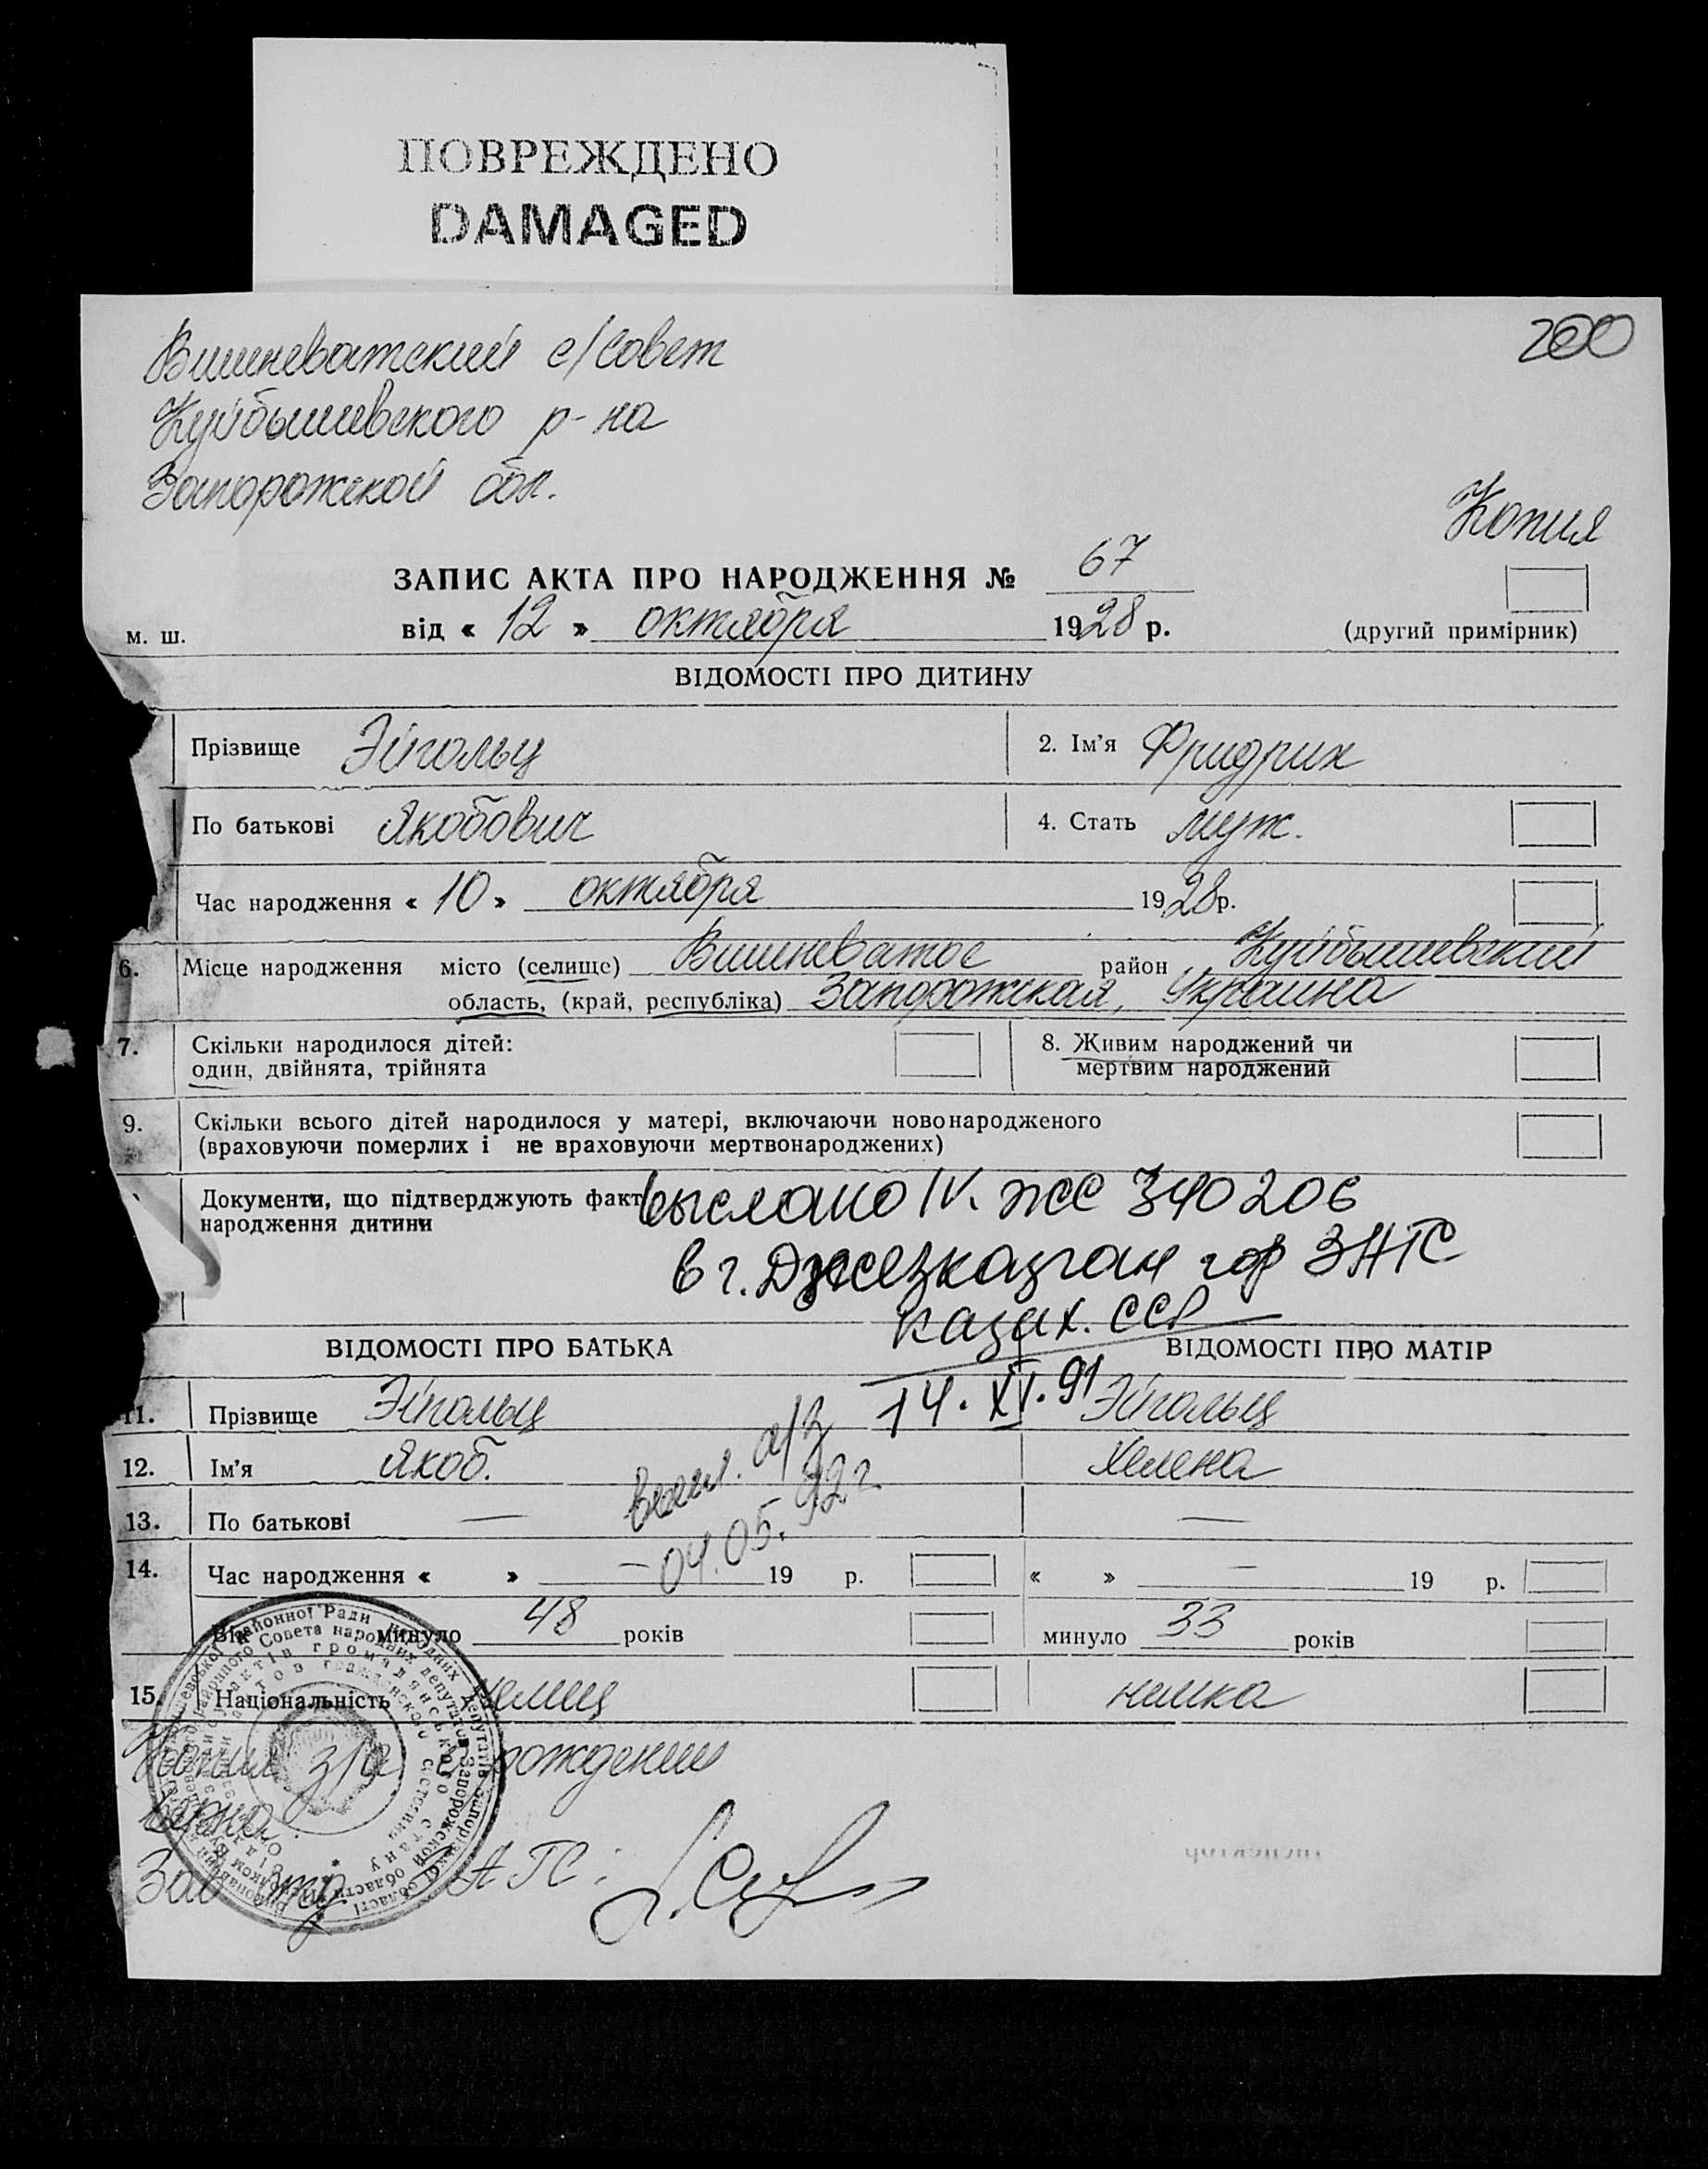 ПОВРЕЖДЕНО
DAMAGED
200
Вишневатский с/Совет
Куйбышевского р-на
Запорожской обл.
Копия
ЗАПИС АКТА ПРО НАРОДЖЕННЯ № 67
м. ш. від « 12 » октября 1928 р. (другий примірник)
ВІДОМОСТІ ПРО ДИТИНУ
Прізвище Эйгольц 2. Ім'я Фридрих
По батькові Якобович 4. Стать муж.
Час народження « 10 » октября 1928 р.
6. Місце народження місто (селище) Вишневатое район Куйбышевский
область, (край, республіка) Запорожская, Украина
7. Скільки народилося дітей: 8. Живим народжений чи
один, двійнята, трійнята мертвим народжений
9. Скільки всього дітей народилося у матері, включаючи новонародженого
(враховуючи померлих і не враховуючи мертвонароджених)
Документи, що підтверджують факт
народження дитини
выслано IV. ЖС 340206
в г. Джезказган гор ЗАГС
казах. ССР
14. XI. 91
ВІДОМОСТІ ПРО БАТЬКА ВІДОМОСТІ ПРО МАТІР
11. Прізвище Эйгольц Эйгольц
12. Ім'я Якоб. Хелена
13. По батькові — —
высл. а/з
04.05.92 г.
14. Час народження « » — 19 р. « » — 19 р.
Вік минуло 48 років минуло 33 років
15. Національність немец немка
Копия з/а рождении
верна.
Зав. ЗАГС: